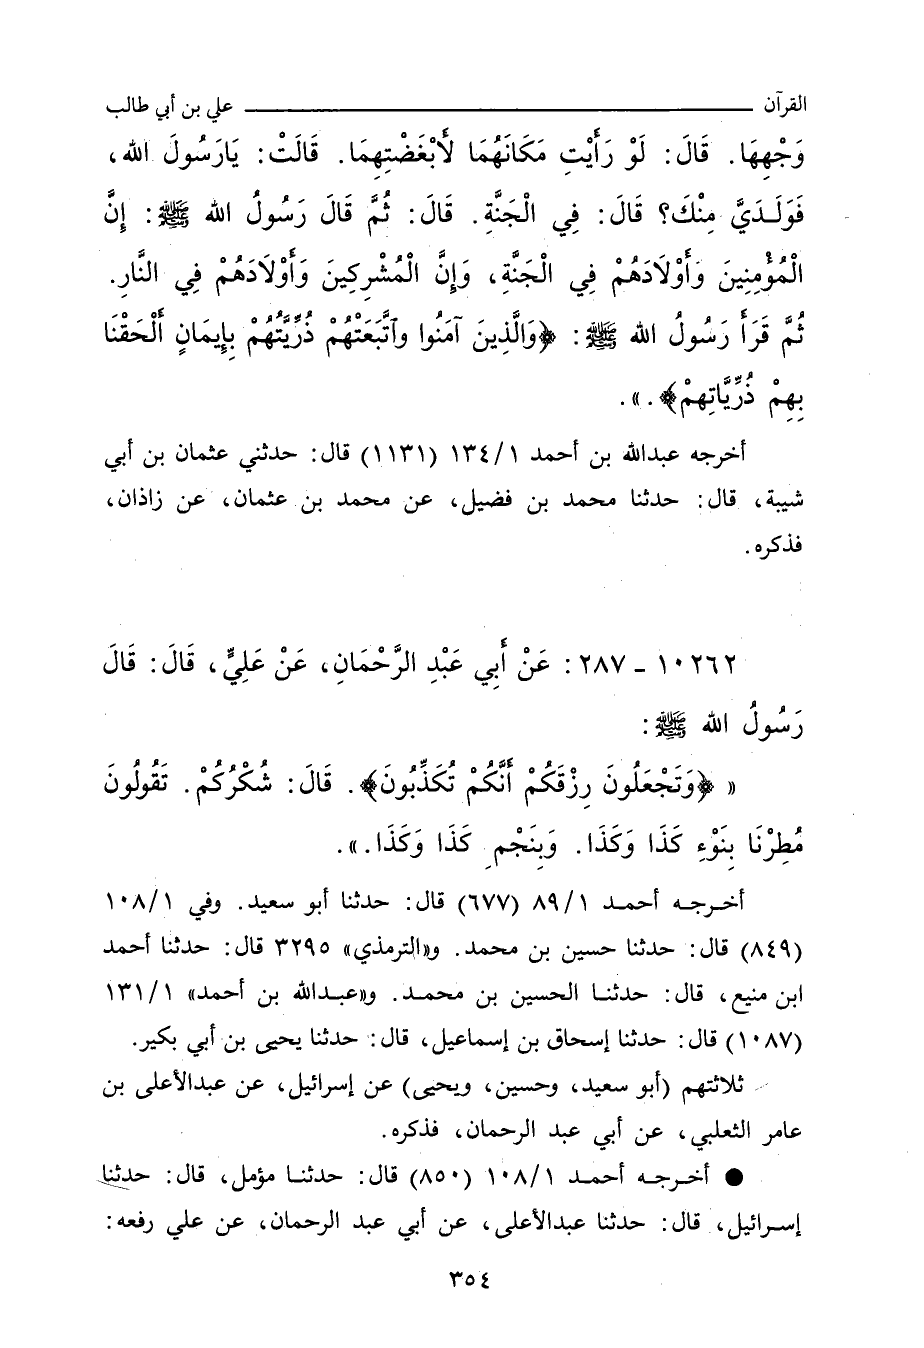 القرآن ــــــــــــــــــــ علي بن أبي طالب
وَجْهِهَا. قَالَ: لَوْ رَأَيْتِ مَكَانَهُمَا لَأَبْغَضْتِهِمَا. قَالَتْ: يَارَسُولَ الله،
فَوَلَدَيَّ مِنْكَ؟ قَالَ: فِي الْجَنَّةِ. قَالَ: ثُمَّ قَالَ رَسُولُ الله ﷺ: إِنَّ
الْمُؤْمِنِينَ وَأَوْلَادَهُمْ فِي الْجَنَّةِ، وَإِنَّ الْمُشْرِكِينَ وَأَوْلَادَهُمْ فِي النَّارِ.
ثُمَّ قَرَأَ رَسُولُ الله ﷺ: ﴿وَالَّذِينَ آمَنُوا وٱتَّبَعَتْهُمْ ذُرِّيَّتُهُمْ بِإِيمَانٍ أَلْحَقْنَا
بِهِمْ ذُرِّيَّاتِهِمْ﴾.».
أخرجه عبدالله بن أحمد ١/١٣٤ (١١٣١) قال: حدثني عثمان بن أبي
شيبة، قال: حدثنا محمد بن فضيل، عن محمد بن عثمان، عن زاذان،
فذكره.
١٠٢٦٢ - ٢٨٧: عَنْ أَبِي عَبْدِ الرَّحْمَانِ، عَنْ عَلِيٍّ، قَالَ: قَالَ
رَسُولُ الله ﷺ:
« ﴿وَتَجْعَلُونَ رِزْقَكُمْ أَنَّكُمْ تُكَذِّبُونَ﴾. قَالَ: شُكْرُكُمْ. تَقُولُونَ
مُطِرْنَا بِنَوْءِ كَذَا وَكَذَا. وَبِنَجْمِ كَذَا وَكَذَا.».
أخرجه أحمد ١/٨٩ (٦٧٧) قال: حدثنا أبو سعيد. وفي ١/١٠٨
(٨٤٩) قال: حدثنا حسين بن محمد. و«الترمذي» ٣٢٩٥ قال: حدثنا أحمد
ابن منيع، قال: حدثنا الحسين بن محمد. و«عبدالله بن أحمد» ١/١٣١
(١٠٨٧) قال: حدثنا إسحاق بن إسماعيل، قال: حدثنا يحيى بن أبي بكير.
ثلاثتهم (أبو سعيد، وحسين، ويحيى) عن إسرائيل، عن عبدالأعلى بن
عامر الثعلبي، عن أبي عبد الرحمان، فذكره.
● أخرجه أحمد ١/١٠٨ (٨٥٠) قال: حدثنا مؤمل، قال: حدثنا
إسرائيل، قال: حدثنا عبدالأعلى، عن أبي عبد الرحمان، عن علي رفعه:
٣٥٤